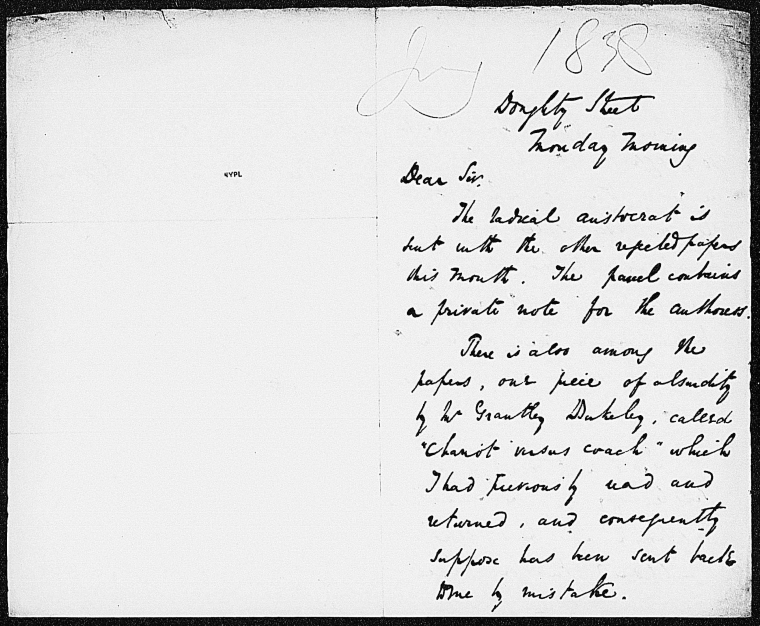 Jny 1838
Doughty Street
Monday Morning
NYPL
Dear Sir.
The radical aristocrat" is
sent with the other rejected papers
this Month. The parcel contains
a private note for the authoress.
There is also among the
papers, one piece of absurdity
by Mr Grantley Berkeley, called
"Chariot versus coach" which
I had previously read and
returned, and consequently
suppose has been sent back
to me by mistake.